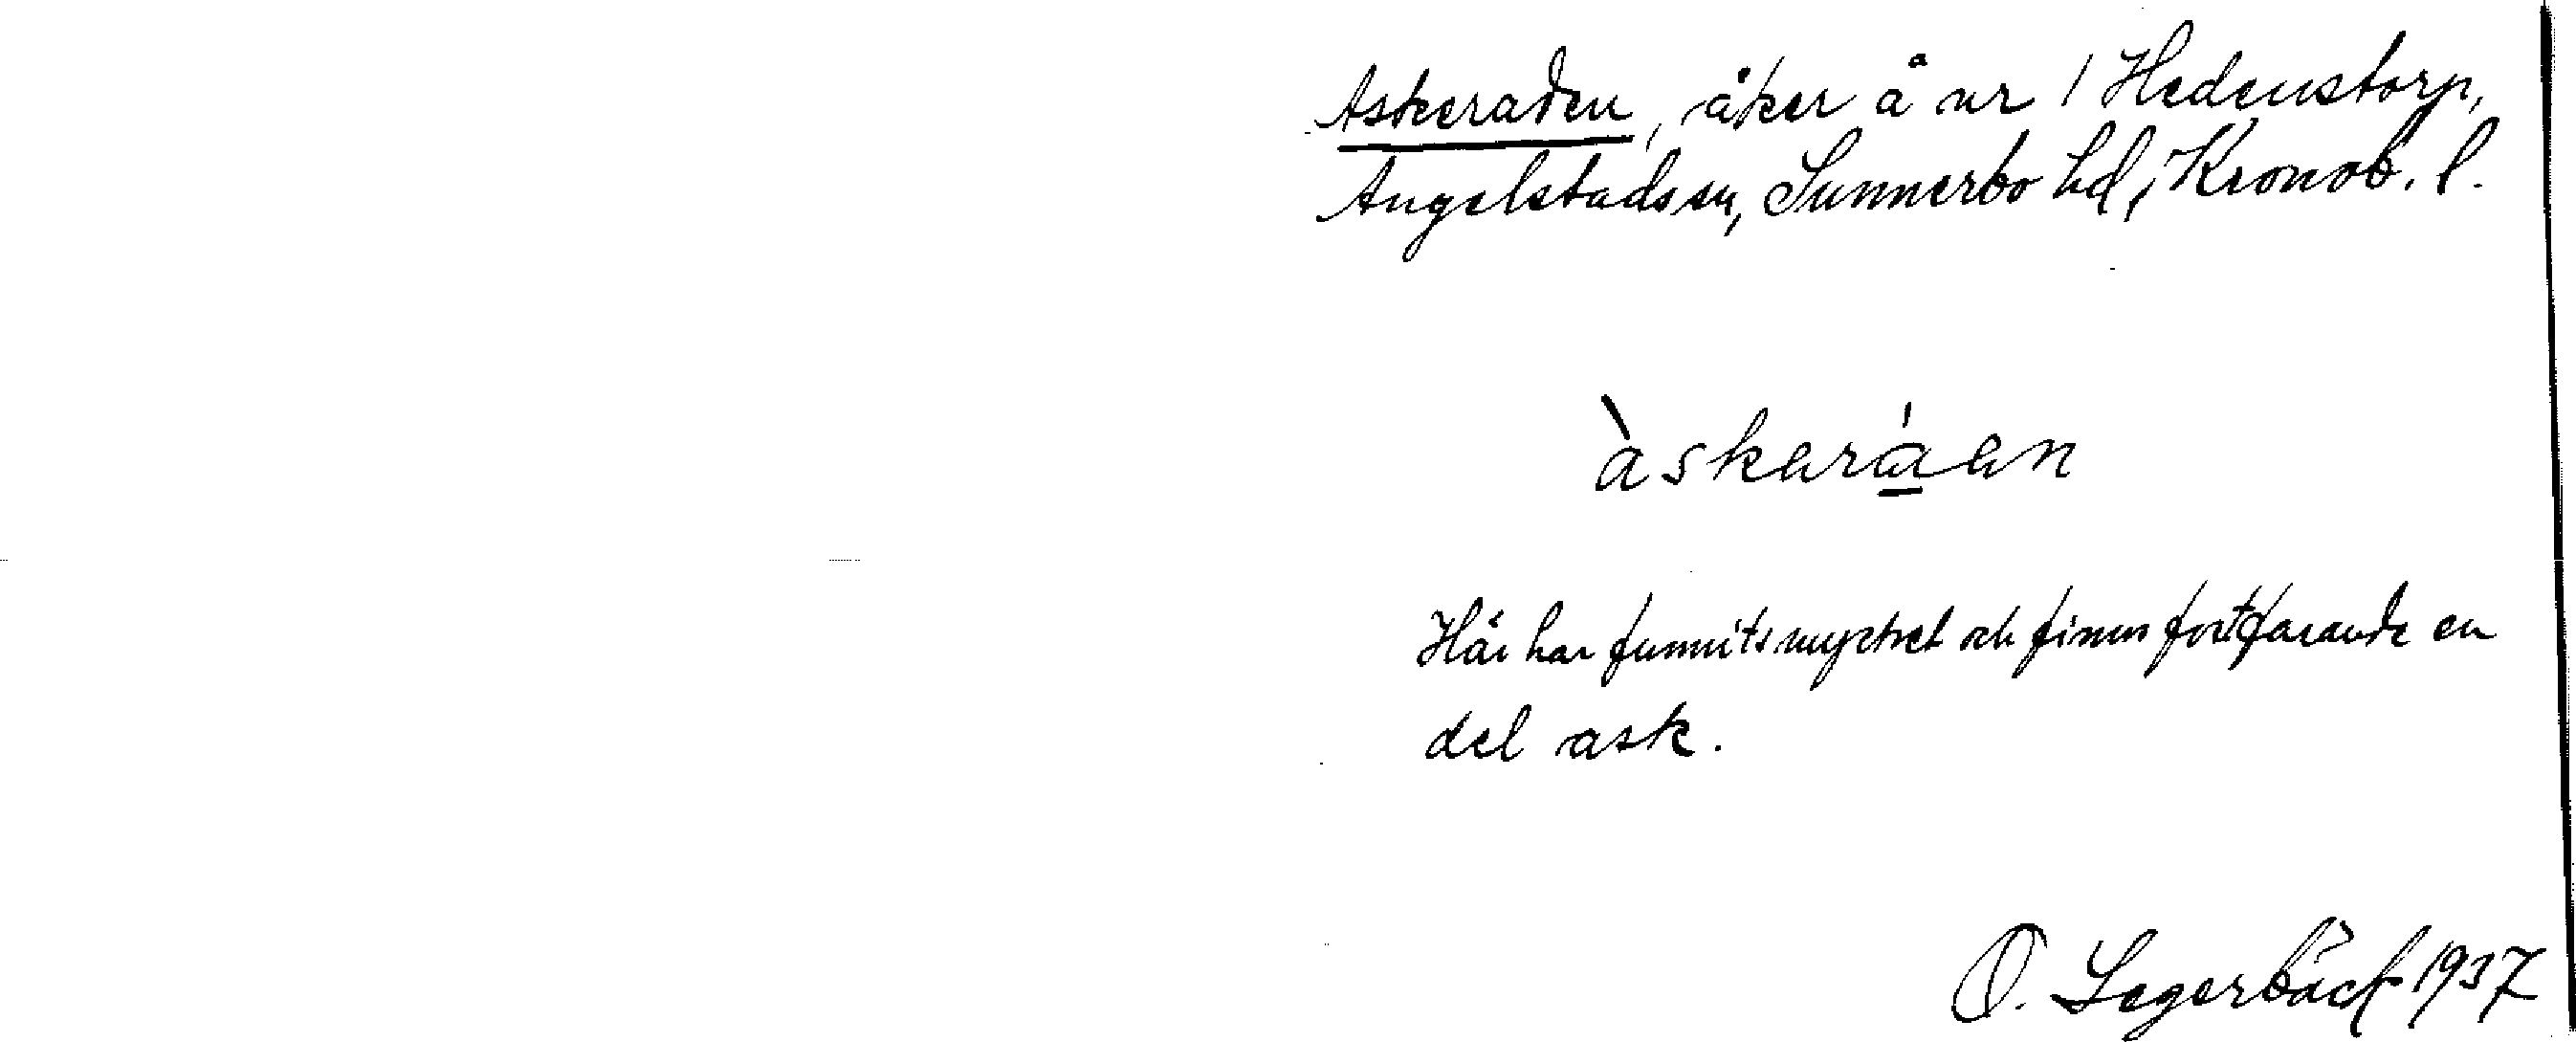 Askeraden, åker å nr 1 Hedenstorp,
Angelstads sn, Sunnerbo hd, Kronob. l.
àskeráen
Här har funnits mycket och finns fortfarande en
del ask.
O. Segerbäck 1937